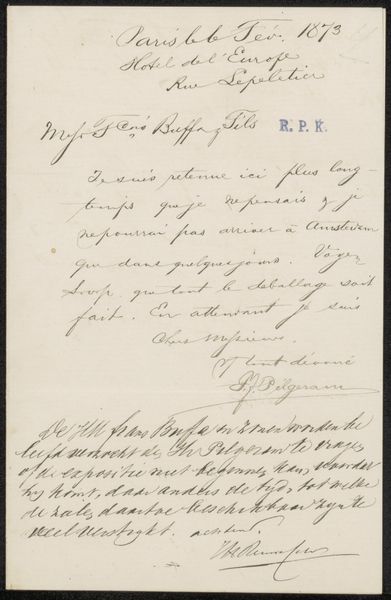 Paris le 6 Fév. 1873
Hotel de l'Europe
Rue Lepeletier
Messrs Fçois Buffa & Fils R. P. K.
Je suis retenue ici plus long-
temps que je ne pensais & je
ne pourrai pas arriver à Amsterdam
que dans quelques jours. Voyez
s.v.p. que tout le déballage soit
fait. En attendant je suis
Chers Messieurs
Tout dévoué
J. Pilgeram
De HH frans Buffa en zonen worden be
leefd verzocht de Hr Pilgeram te vragen
of de expositie niet beginnen kan, voordat
hij komt, daar anders de tyd, tot welke
de zalen daartoe beschikbaar zyn te
veel verstrykt.